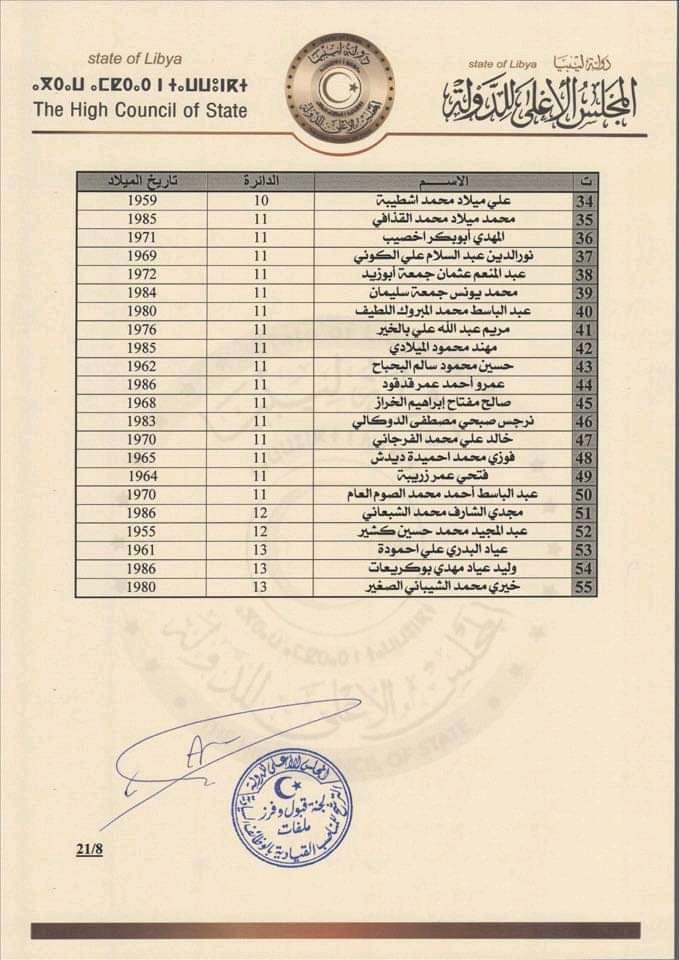 state of Libya
ⴰⴳⵔⴰⵡ ⴰⵎⵇⵔⴰⵏ ⵏ ⵜⴰⵡⵡⵓⵏⴽⵜ
The High Council of State
دولة ليبيا
state of Libya
المجلس الأعلى للدولة
ت الاسم الدائرة تاريخ الميلاد
34 علي ميلاد محمد اشطيبة 10 1959
35 محمد ميلاد محمد القذافي 11 1985
36 المهدي أبوبكر اخصيب 11 1971
37 نورالدين عبد السلام علي الكوني 11 1969
38 عبد المنعم عثمان جمعة أبوزيد 11 1972
39 محمد يونس جمعة سليمان 11 1984
40 عبد الباسط محمد المبروك اللطيف 11 1980
41 مريم عبد الله علي بالخير 11 1976
42 مهند محمود الميلادي 11 1985
43 حسين محمود سالم البحباح 11 1962
44 عمرو أحمد عمر قدقود 11 1986
45 صالح مفتاح إبراهيم الخراز 11 1968
46 نرجس صبحي مصطفى الدوكالي 11 1983
47 خالد علي محمد الفرجاني 11 1970
48 فوزي محمد احميدة ديدش 11 1965
49 فتحي عمر زريبة 11 1964
50 عبد الباسط أحمد محمد الصوم العام 11 1970
51 مجدي الشارف محمد الشبعاني 12 1986
52 عبد المجيد محمد حسين كشير 12 1955
53 عياد البدري علي احمودة 13 1961
54 وليد عياد مهدي بوكريعات 13 1986
55 خيري محمد الشيباني الصغير 13 1980
المجلس الأعلى للدولة
لجنة قبول وفرز
ملفات
21/8